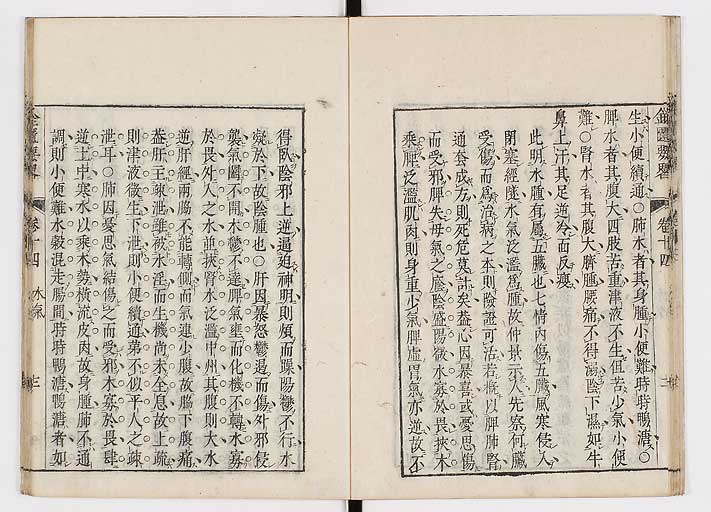 生小便續通○肺水者其身腫小便難時時鴨溏○
脾水者其腹大四肢苦重津液不生但苦少氣小便
難○腎水者其腹大臍腫腰痛不得溺陰下濕如牛
鼻上汗其足逆冷面反瘦
此明水腫有屬五臟也七情內傷五臟風寒侵入
閉塞經隧水氣泛濫爲腫故仲景示人先察何臟
受傷而爲治病之本則陰證可活若概以脾肺腎
通套成方則死危莫計矣蓋心因暴喜或憂思傷
而受邪脾失母氣之
乘脾泛濫肌肉則身重少氣脾虛胃氣亦逆故不
得臥陰邪上逆逼迫神明則煩而躁陽鬱不行水
凝於下故陰腫也○肝因暴怒鬱遏而傷外邪侵
襲氣閉不開木鬱不達脾氣壅而化機不轉水寡
於畏外入之水並挾腎水泛濫中州其腹則大水
逆肝經兩脇不能轉側而氣連少腹故脇下腹痛
蓋肝主疎泄雖被水淫而生機尚未全息故上疏
則津液微生下泄則小便續通第不似平人之疎
泄耳○肺因憂思氣結傷之而受邪木寡於畏肆
逆土中寒水以乘木勢橫流皮肉故身腫肺不通
調則小便難水穀混走腸間時時鴨溏鴨溏者如
金匱要略 卷十四 二
金匱要略 卷十四 水氣 三